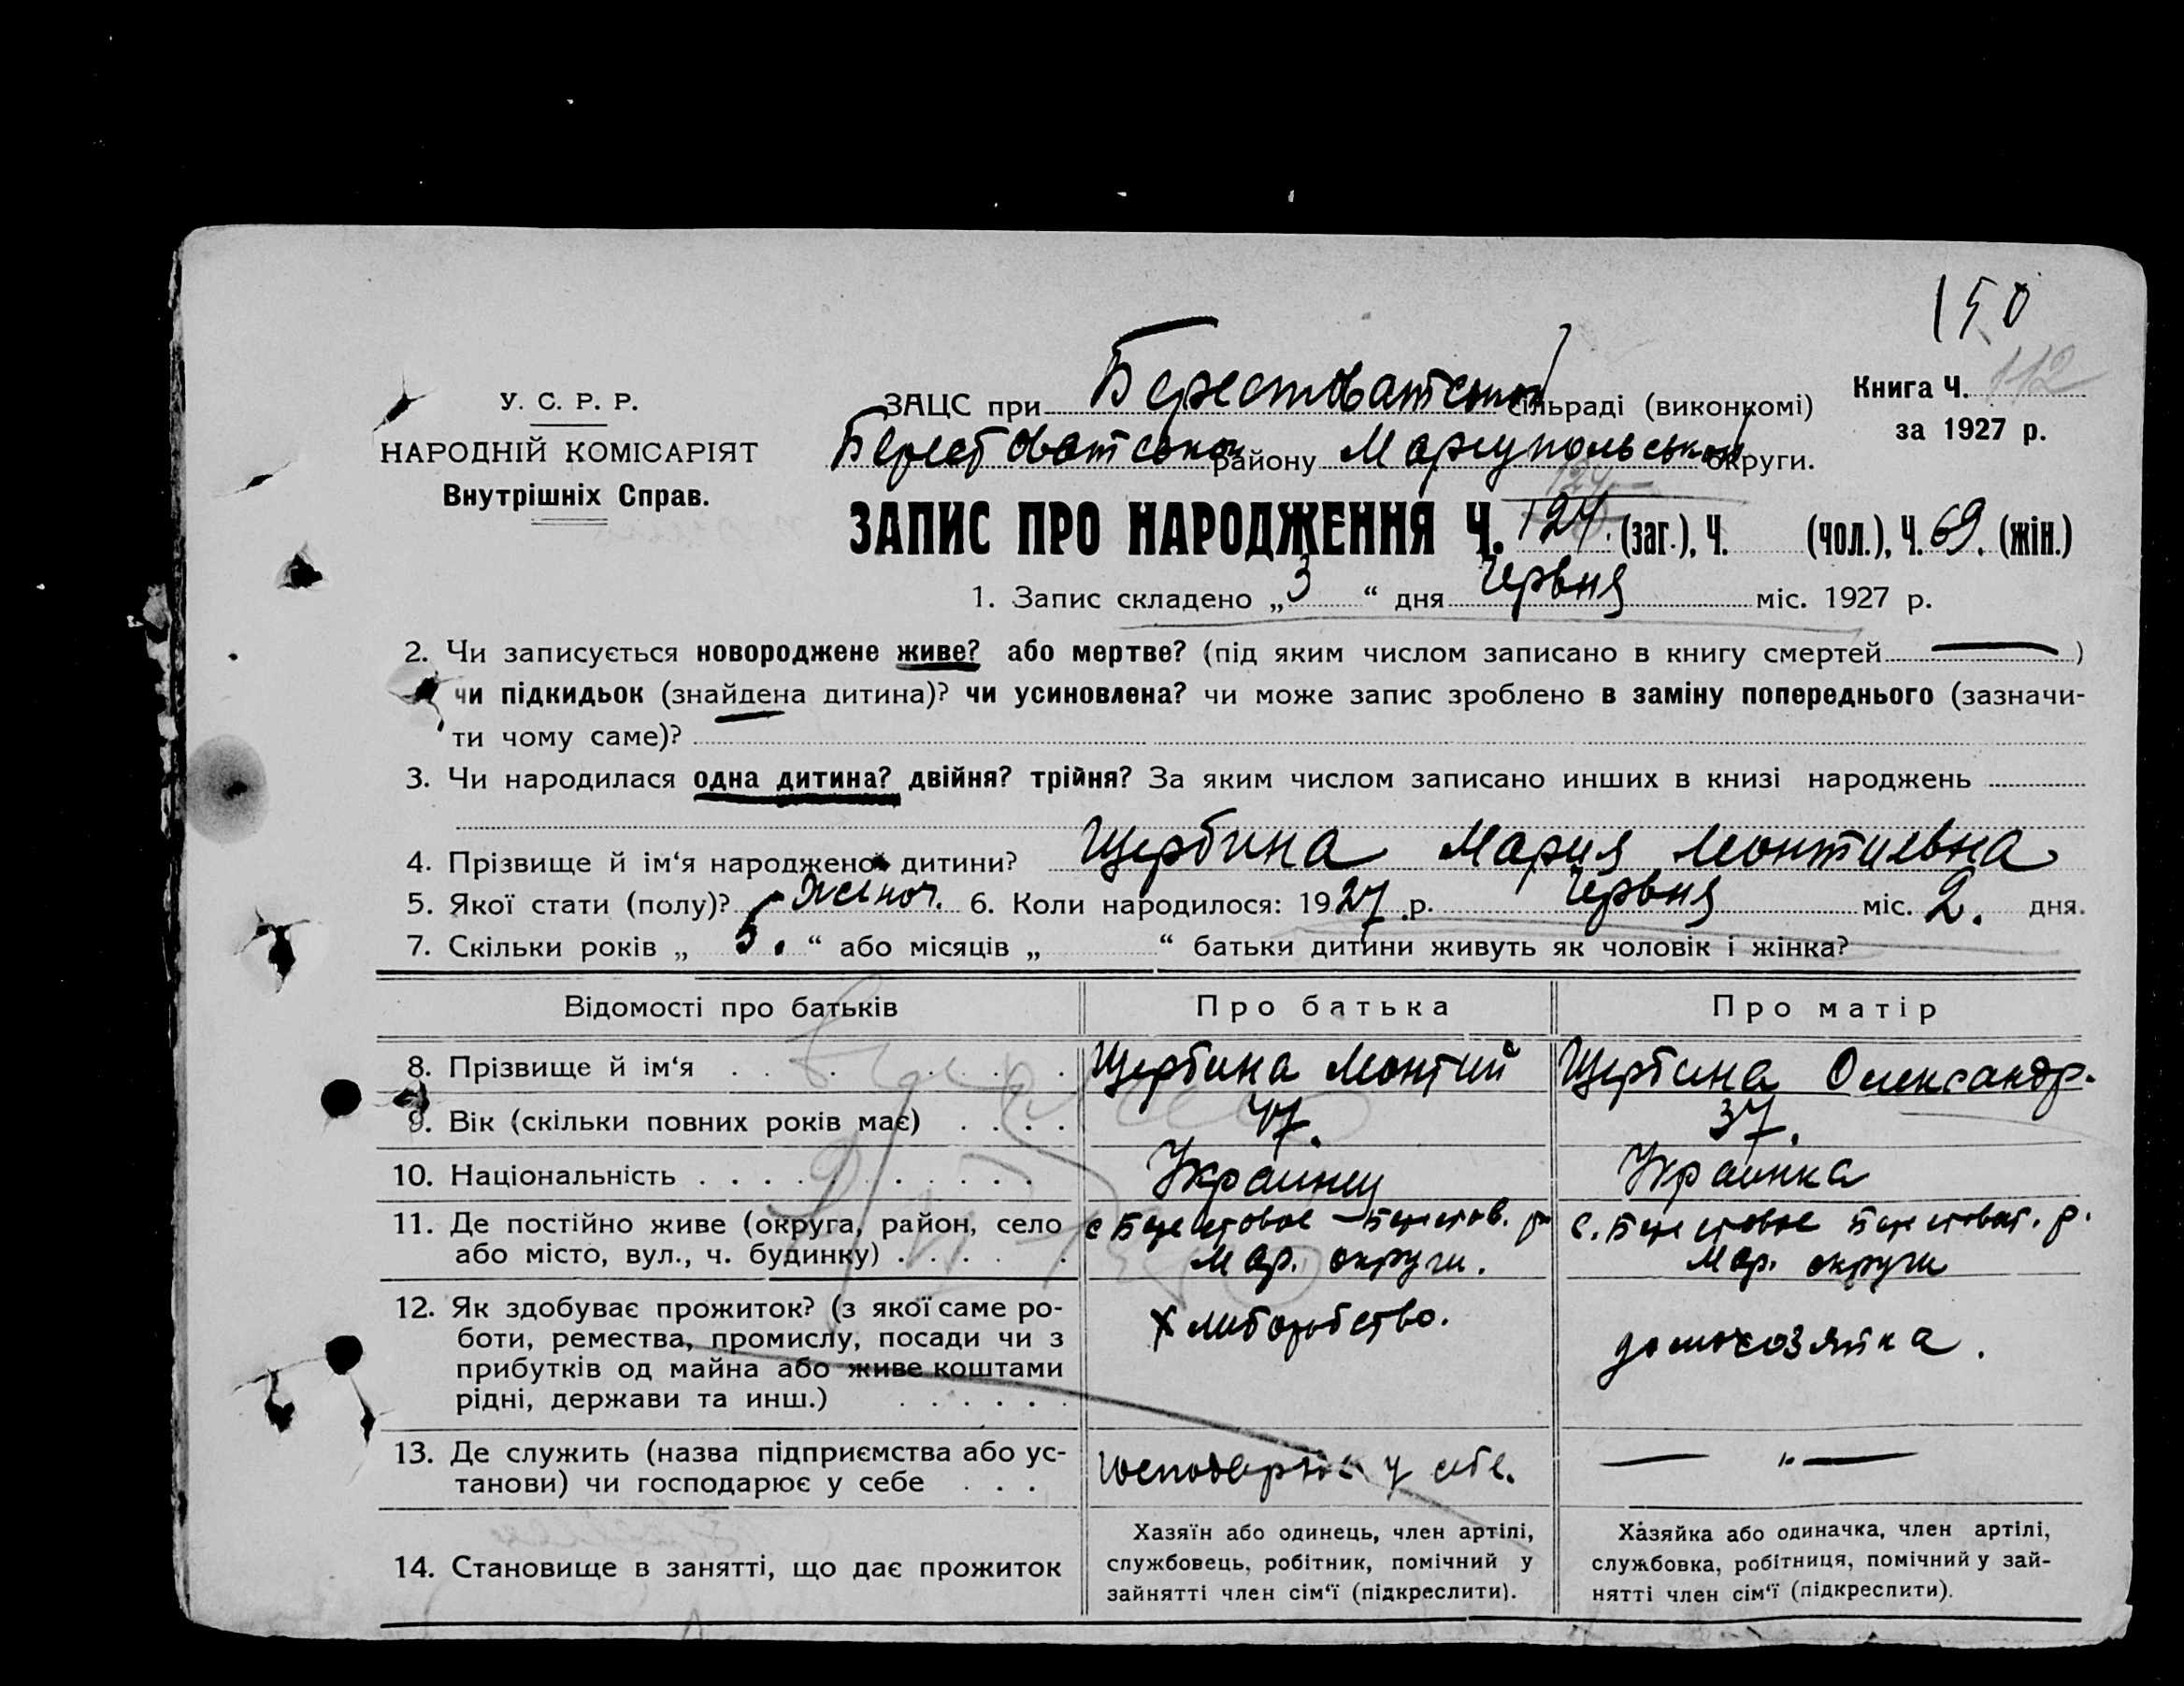 150
У. С. Р. Р.
НАРОДНІЙ КОМІСАРІЯТ
Внутрішніх Справ.
ЗАЦС при Берестоватській сільраді (виконкомі)
Берестоватської району Маріупольської округи.
Книга Ч. 112
за 1927 р.
124
ЗАПИС ПРО НАРОДЖЕННЯ Ч. 124. (заг.), Ч. (чол.), Ч. 69. (жін.)
1. Запис складено „ 3 “ дня Червня міс. 1927 р.
2. Чи записується новороджене живе? або мертве? (під яким числом записано в книгу смертей — )
чи підкидьок (знайдена дитина)? чи усиновлена? чи може запис зроблено в заміну попереднього (зазначи-
ти чому саме)?
3. Чи народилася одна дитина? двійня? трійня? За яким числом записано инших в книзі народжень
4. Прізвище й ім‘я народженої дитини? Щербина Мария Леонтиевна
5. Якої стати (полу)? Жіноч. 6. Коли народилося: 1927 р. Червня міс. 2. дня.
7. Скільки років „ 5. “ або місяців „ “ батьки дитини живуть як чоловік і жінка?
Відомості про батьків Про батька Про матір
8. Прізвище й ім‘я Щербина Леонтий Щербина Олександр.
9. Вік (скільки повних років має) 47. 37.
10. Національність Украинец Украинка
11. Де постійно живе (округа, район, село с Берестовое – Берестов. р. с. Берестовое Берестоват. р.
або місто, вул., ч. будинку) Мар. округи. Мар. округи
12. Як здобуває прожиток? (з якої саме ро- Хлиборобство. домохозяйка.
боти, ремества, промислу, посади чи з
прибутків од майна або живе коштами
рідні, держави та инш.)
13. Де служить (назва підприємства або ус- господарює у себе. — „ —
танови) чи господарює у себе
14. Становище в занятті, що дає прожиток
Хазяїн або одинець, член артілі,
службовець, робітник, помічний у
зайнятті член сім‘ї (підкреслити).
Хазяйка або одиначка, член артілі,
службовка, робітниця, помічний у зай-
нятті член сім‘ї (підкреслити).